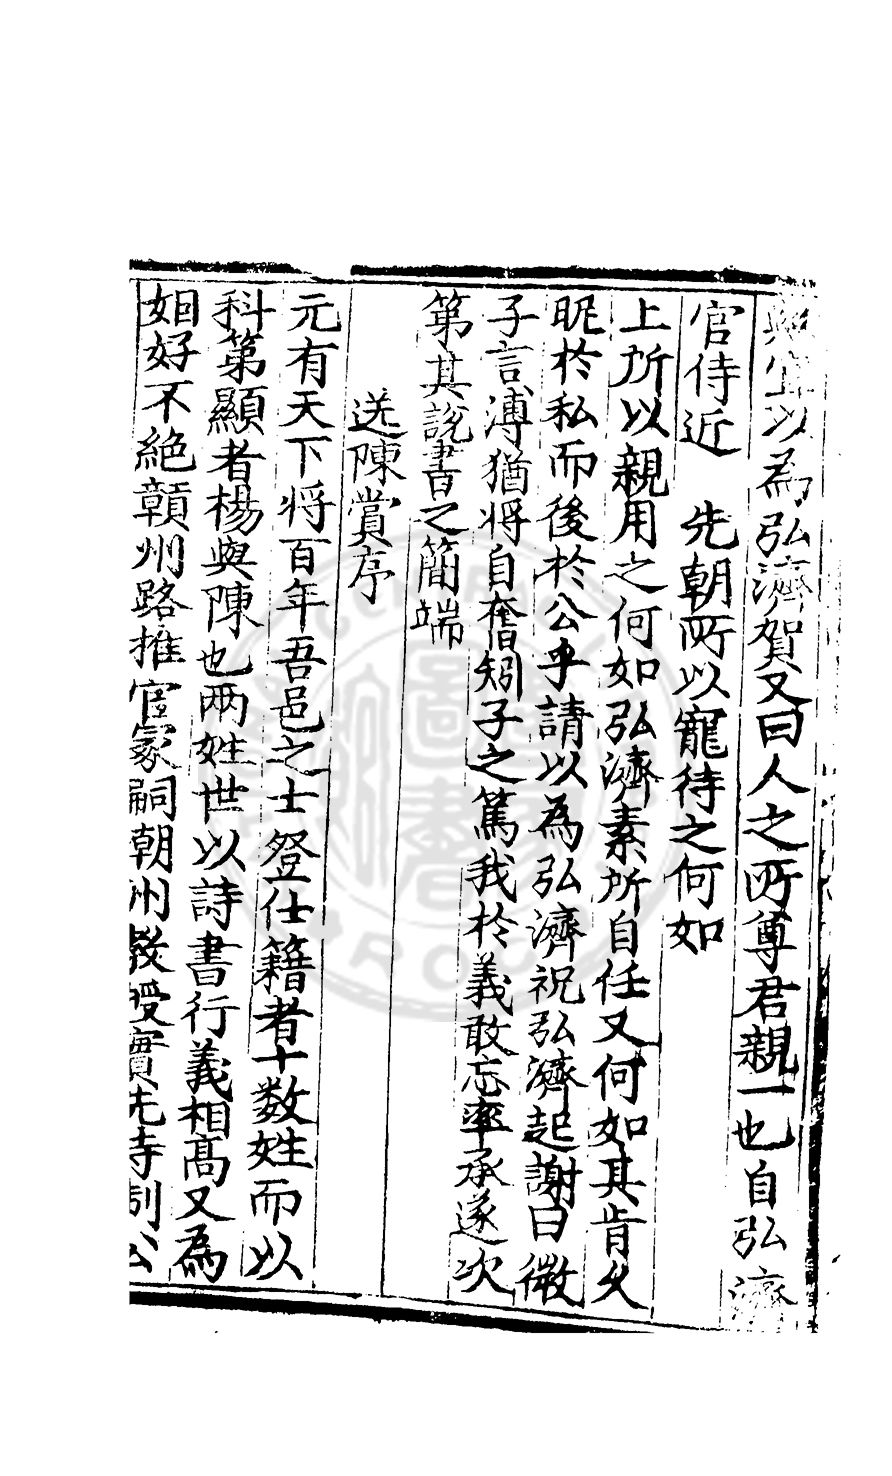 以為弘濟賀又曰人之所尊君親一也自弘濟
官侍近　先朝所以寵待之何如
上所以親用之何如弘濟素所自任又何如其肯少
昵於私而後於公乎請以為弘濟祝弘濟起謝曰微
子言溥猶將自奮矧子之篤我於義敢忘率承遂次
第其說書之簡端
送陳賞序
元有天下将百年吾邑之士登仕籍者十数姓而以
科第顯者楊與陳也两姓世以詩書行義相髙又為
姻好不絶贛州路推官冢嗣朝州教授實先寺制公